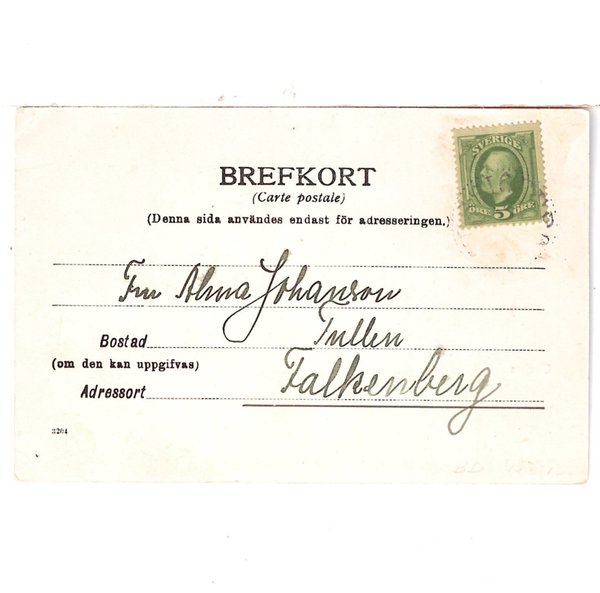 BREFKORT
(Carte postale)
(Denna sida användes endast för adresseringen.)
SVERIGE
ÖRE 5 ÖRE
Fru Alma Johanson
Bostad Tullen
(om den kan uppgifvas)
Adressort Falkenberg
3204